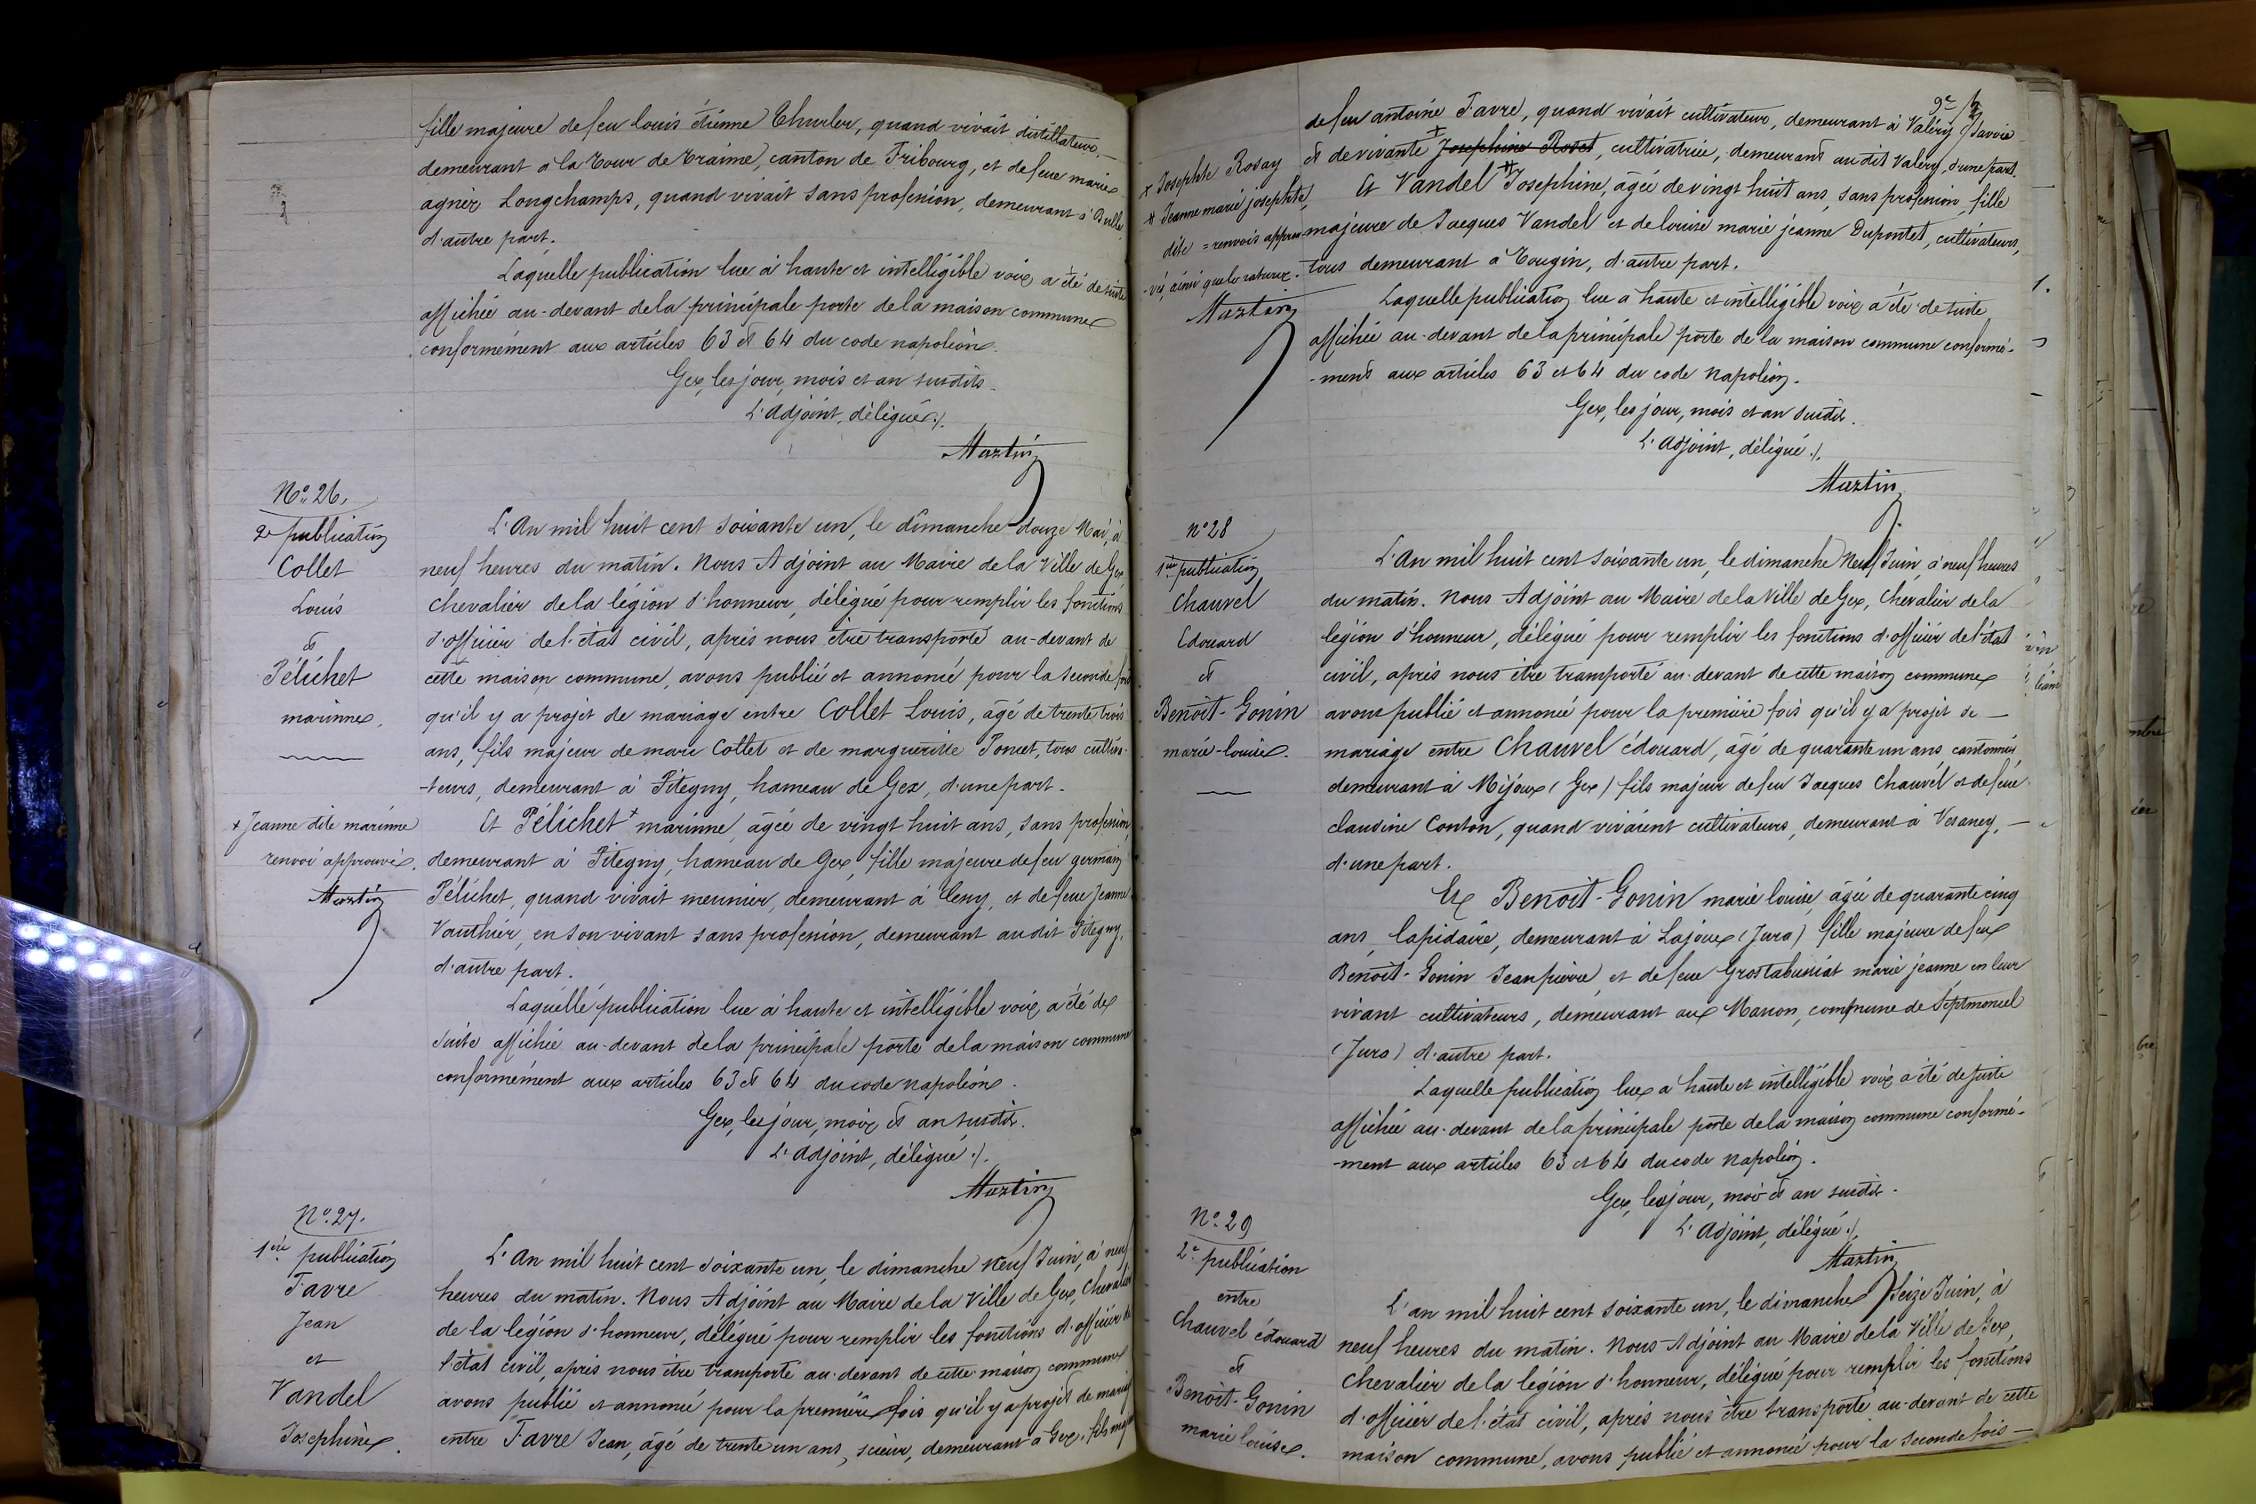 fille majeure de feu louis étienne Thurler, quand vivait distillateur, —
demeurant à la Tour de Traime, canton de Fribourg, et de feue marie
agnès Longchamps, quand vivait sans profession, demeurant à Bulle,
d'autre part.
Laquelle publication lue à haute et intelligible voix, a été de suite
affichée au-devant de la principale porte de la maison commune
conformément aux articles 63 et 64 du code napoléon.
Gex, les jour, mois et an susdits.
L'adjoint, délégué./.
Martin
No. 26.
2e publication
Collet
Louis
et
Pélichet
marinne.
L'An mil huit cent soixante un, le dimanche douze Mai, à
neuf heures du matin. Nous Adjoint au Maire de la Ville de Gex,
Chevalier de la légion d'honneur, délégué pour remplir les fonctions
d'officier de l'état civil, après nous être transporté au-devant de
cette maison commune, avons publié et annoncé pour la seconde fois
qu'il y a projet de mariage entre Collet Louis, âgé de trente trois
ans, fils majeur de marc Collet et de marguerite Poncet, tous cultiva-
-teurs, demeurant à Pitegny, hameau de Gex, d'une part.
+ Jeanne dite marinne
renvoi approuvé.
Martin
Et Pélichet + marinne, âgée de vingt huit ans, sans profession,
demeurant à Pitegny, hameau de Gex, fille majeure de feu germain
Pélichet, quand vivait meunier, demeurant à Cessy, et de feue Jeanne
Vauthier, en son vivant sans profession, demeurant au dit Pitegny,
d'autre part.
Laquelle publication lue à haute et intelligible voix, a été de
suite affichée au-devant de la principale porte de la maison commune
conformément aux articles 63 et 64 du code napoléon.
Gex, les jour, mois et an susdits.
L'adjoint, délégué./.
Martin
No. 27.
1ère publication
Favre
Jean
et
Vandel
Josephine.
L'An mil huit cent soixante un, le dimanche neuf Juin, à neuf
heures du matin. Nous Adjoint au Maire de la Ville de Gex, Chevalier
de la légion d'honneur, délégué pour remplir les fonctions d'officier de
l'état civil, après nous être transporté au-devant de cette maison commune
avons publié et annoncé pour la première fois qu'il y a projet de mariage
entre Favre Jean, âgé de trente un ans, scieur, demeurant à Gex, fils majeur
de feu antoine Favre, quand vivait cultivateur, demeurant à Valéry (Savoie
et de vivante + Josephine Roset, cultivatrice, demeurant au dit Valery, d'une part.
+ Josephte Rosay
# Jeanne marie josephte,
dite = renvois approu
-vés, ainsi que la rature.
Martin
Et Vandel # Josephine, âgée de vingt huit ans, sans profession, fille
majeure de Jacques Vandel et de louise marie jeanne Dupontet, cultivateurs,
tous demeurant à Tougin, d'autre part.
Laquelle publication lue à haute et intelligible voix a été de suite
affichée au-devant de la principale porte de la maison commune conformé-
-ment aux articles 63 et 64 du code napoléon.
Gex, les jour, mois et an susdit.
L'adjoint, délégué./.
Martin
No 28
1ère publication
Chauvel
Edouard
et
Benoît-Gonin
marie-louise.
L'An mil huit cent soixante un, le dimanche Neuf Juin, à neuf heures
du matin. Nous Adjoint au Maire de la Ville de Gex, Chevalier de la
légion d'honneur, délégué pour remplir les fonctions d'officier de l'état
civil, après nous être transporté au-devant de cette maison commune
avons publié et annoncé pour la première fois qu'il y a projet de —
mariage entre Chauvel édouard, âgé de quarante un ans cantonnier
demeurant à Mijoux (Gex) fils majeur de feu Jacques Chauvel et de feue
claudine Conton, quand vivaient cultivateurs, demeurant à Vesancy, —
d'une part.
Et Benoit-Gonin marie louise, âgée de quarante cinq
ans, lapidaire, demeurant à Lajoux (Jura) fille majeure de feu
Benoit-Gonin Jean pierre, et de feue Grostabussiat marie jeanne en leur
vivant cultivateurs, demeurant aux Manon, commune de Septmoncel
(Jura) d'autre part.
Laquelle publication lue à haute et intelligible voix a été de suite
affichée au-devant de la principale porte de la maison commune conformé-
-ment aux articles 63 et 64 du code napoléon.
Gex, les jour, mois et an susdit.
L'Adjoint, délégué./.
Martin
No. 29
2e publication
entre
Chauvel édouard
et
Benoit-Gonin
marie louise.
L'an mil huit cent soixante un, le dimanche Seize Juin, à
neuf heures du matin. Nous Adjoint au Maire de la Ville de Gex,
Chevalier de la légion d'honneur, délégué pour remplir les fonctions
d'officier de l'état civil, après nous être transporté au-devant de cette
maison commune, avons publié et annoncé pour la seconde fois —